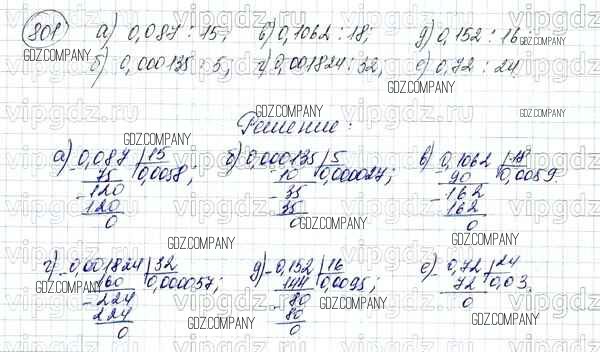 801) а) 0,087 : 15; в) 0,1062 : 18; д) 0,152 : 16;
б) 0,000135 : 5; г) 0,001824 : 32; е) 0,72 : 24
Решение:
а) 0,087 | 15 б) 0,000135 | 5 в) 0,1062 | 18
- 75 0,0058; - 10 0,000027; - 90 0,0059
- 120 - 35 - 162
120 35 162
0 0 0
г) 0,001824 | 32 д) 0,152 | 16 е) 0,72 | 24
160 0,000057; 144 0,0095; 72 0,03.
- 224 - 80 0
224 80
0 0
GDZ.COMPANY
vipgdz.ru